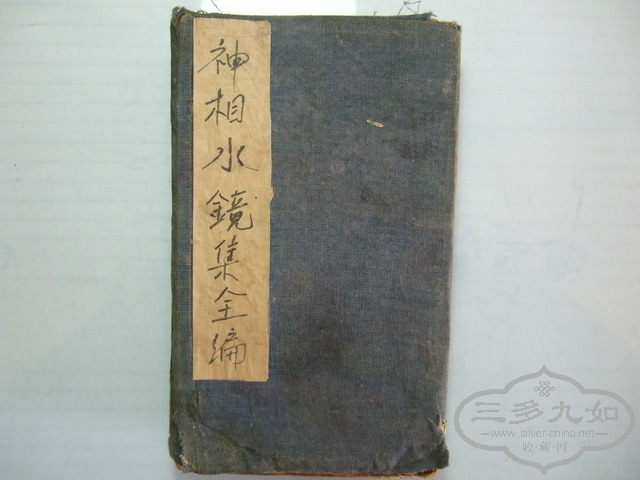 神相水鏡集全编
三多九如
www.silver-china.net
收藏网